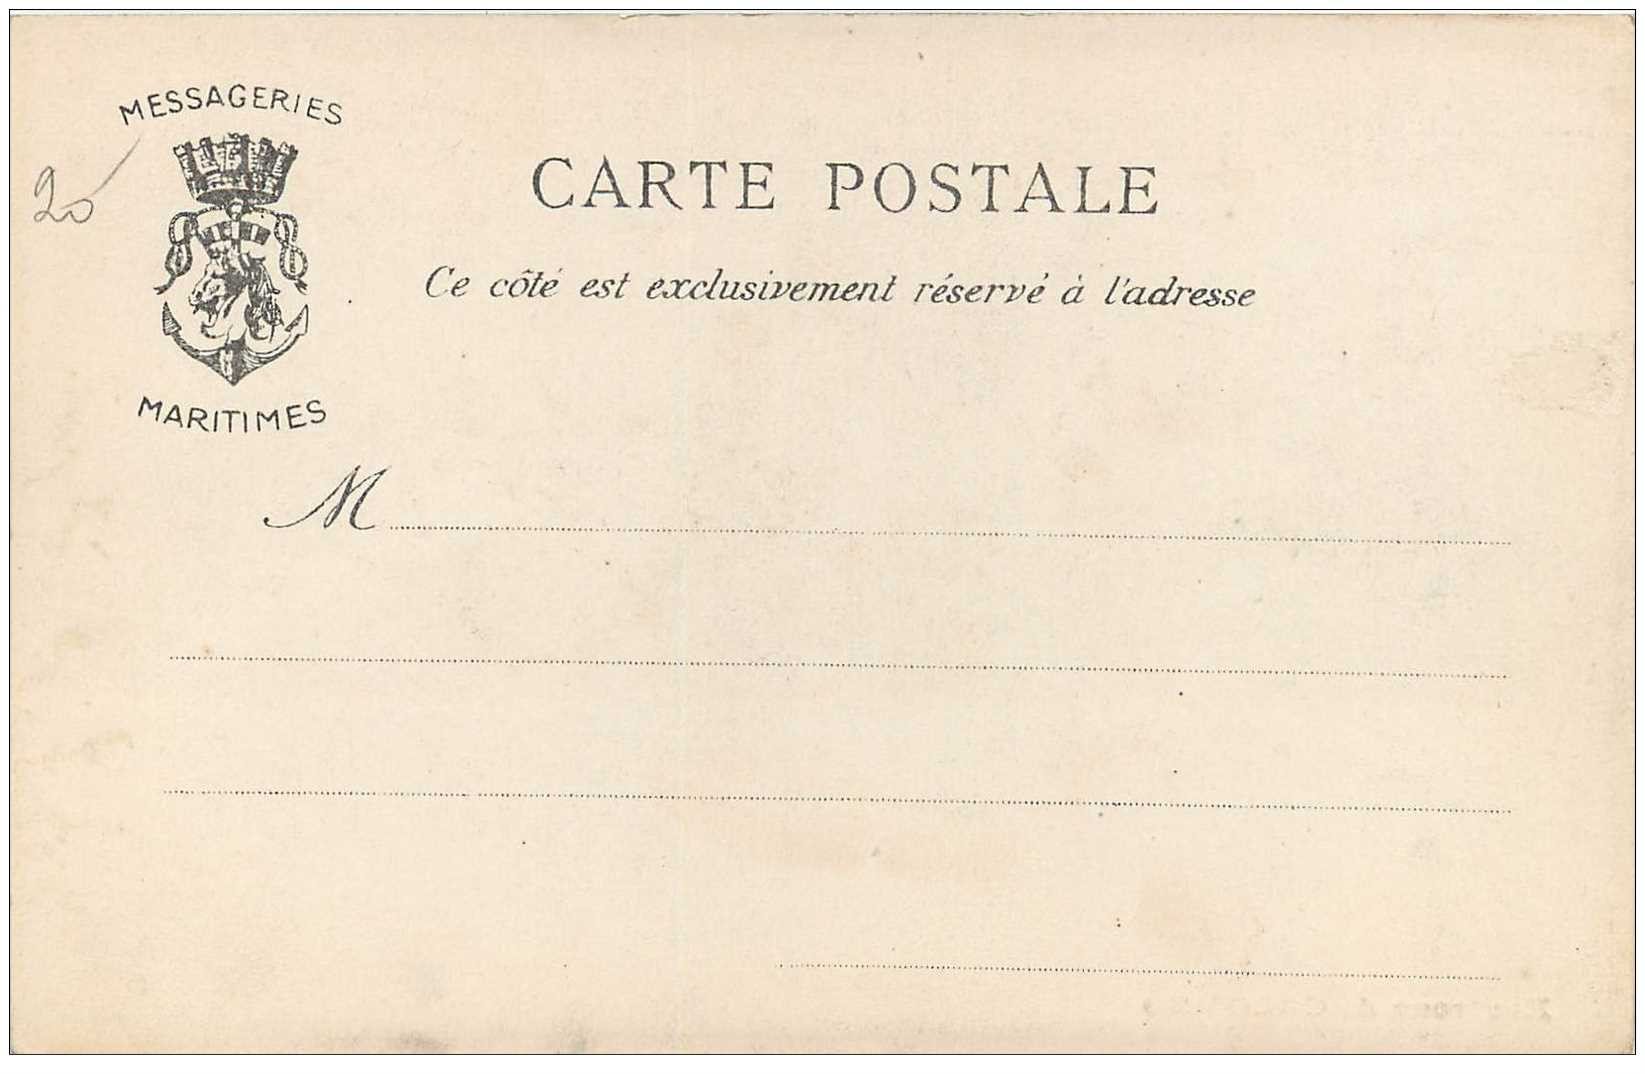 MESSAGERIES
20
CARTE POSTALE
Ce côté est exclusivement réservé à l'adresse
MARITIMES
M